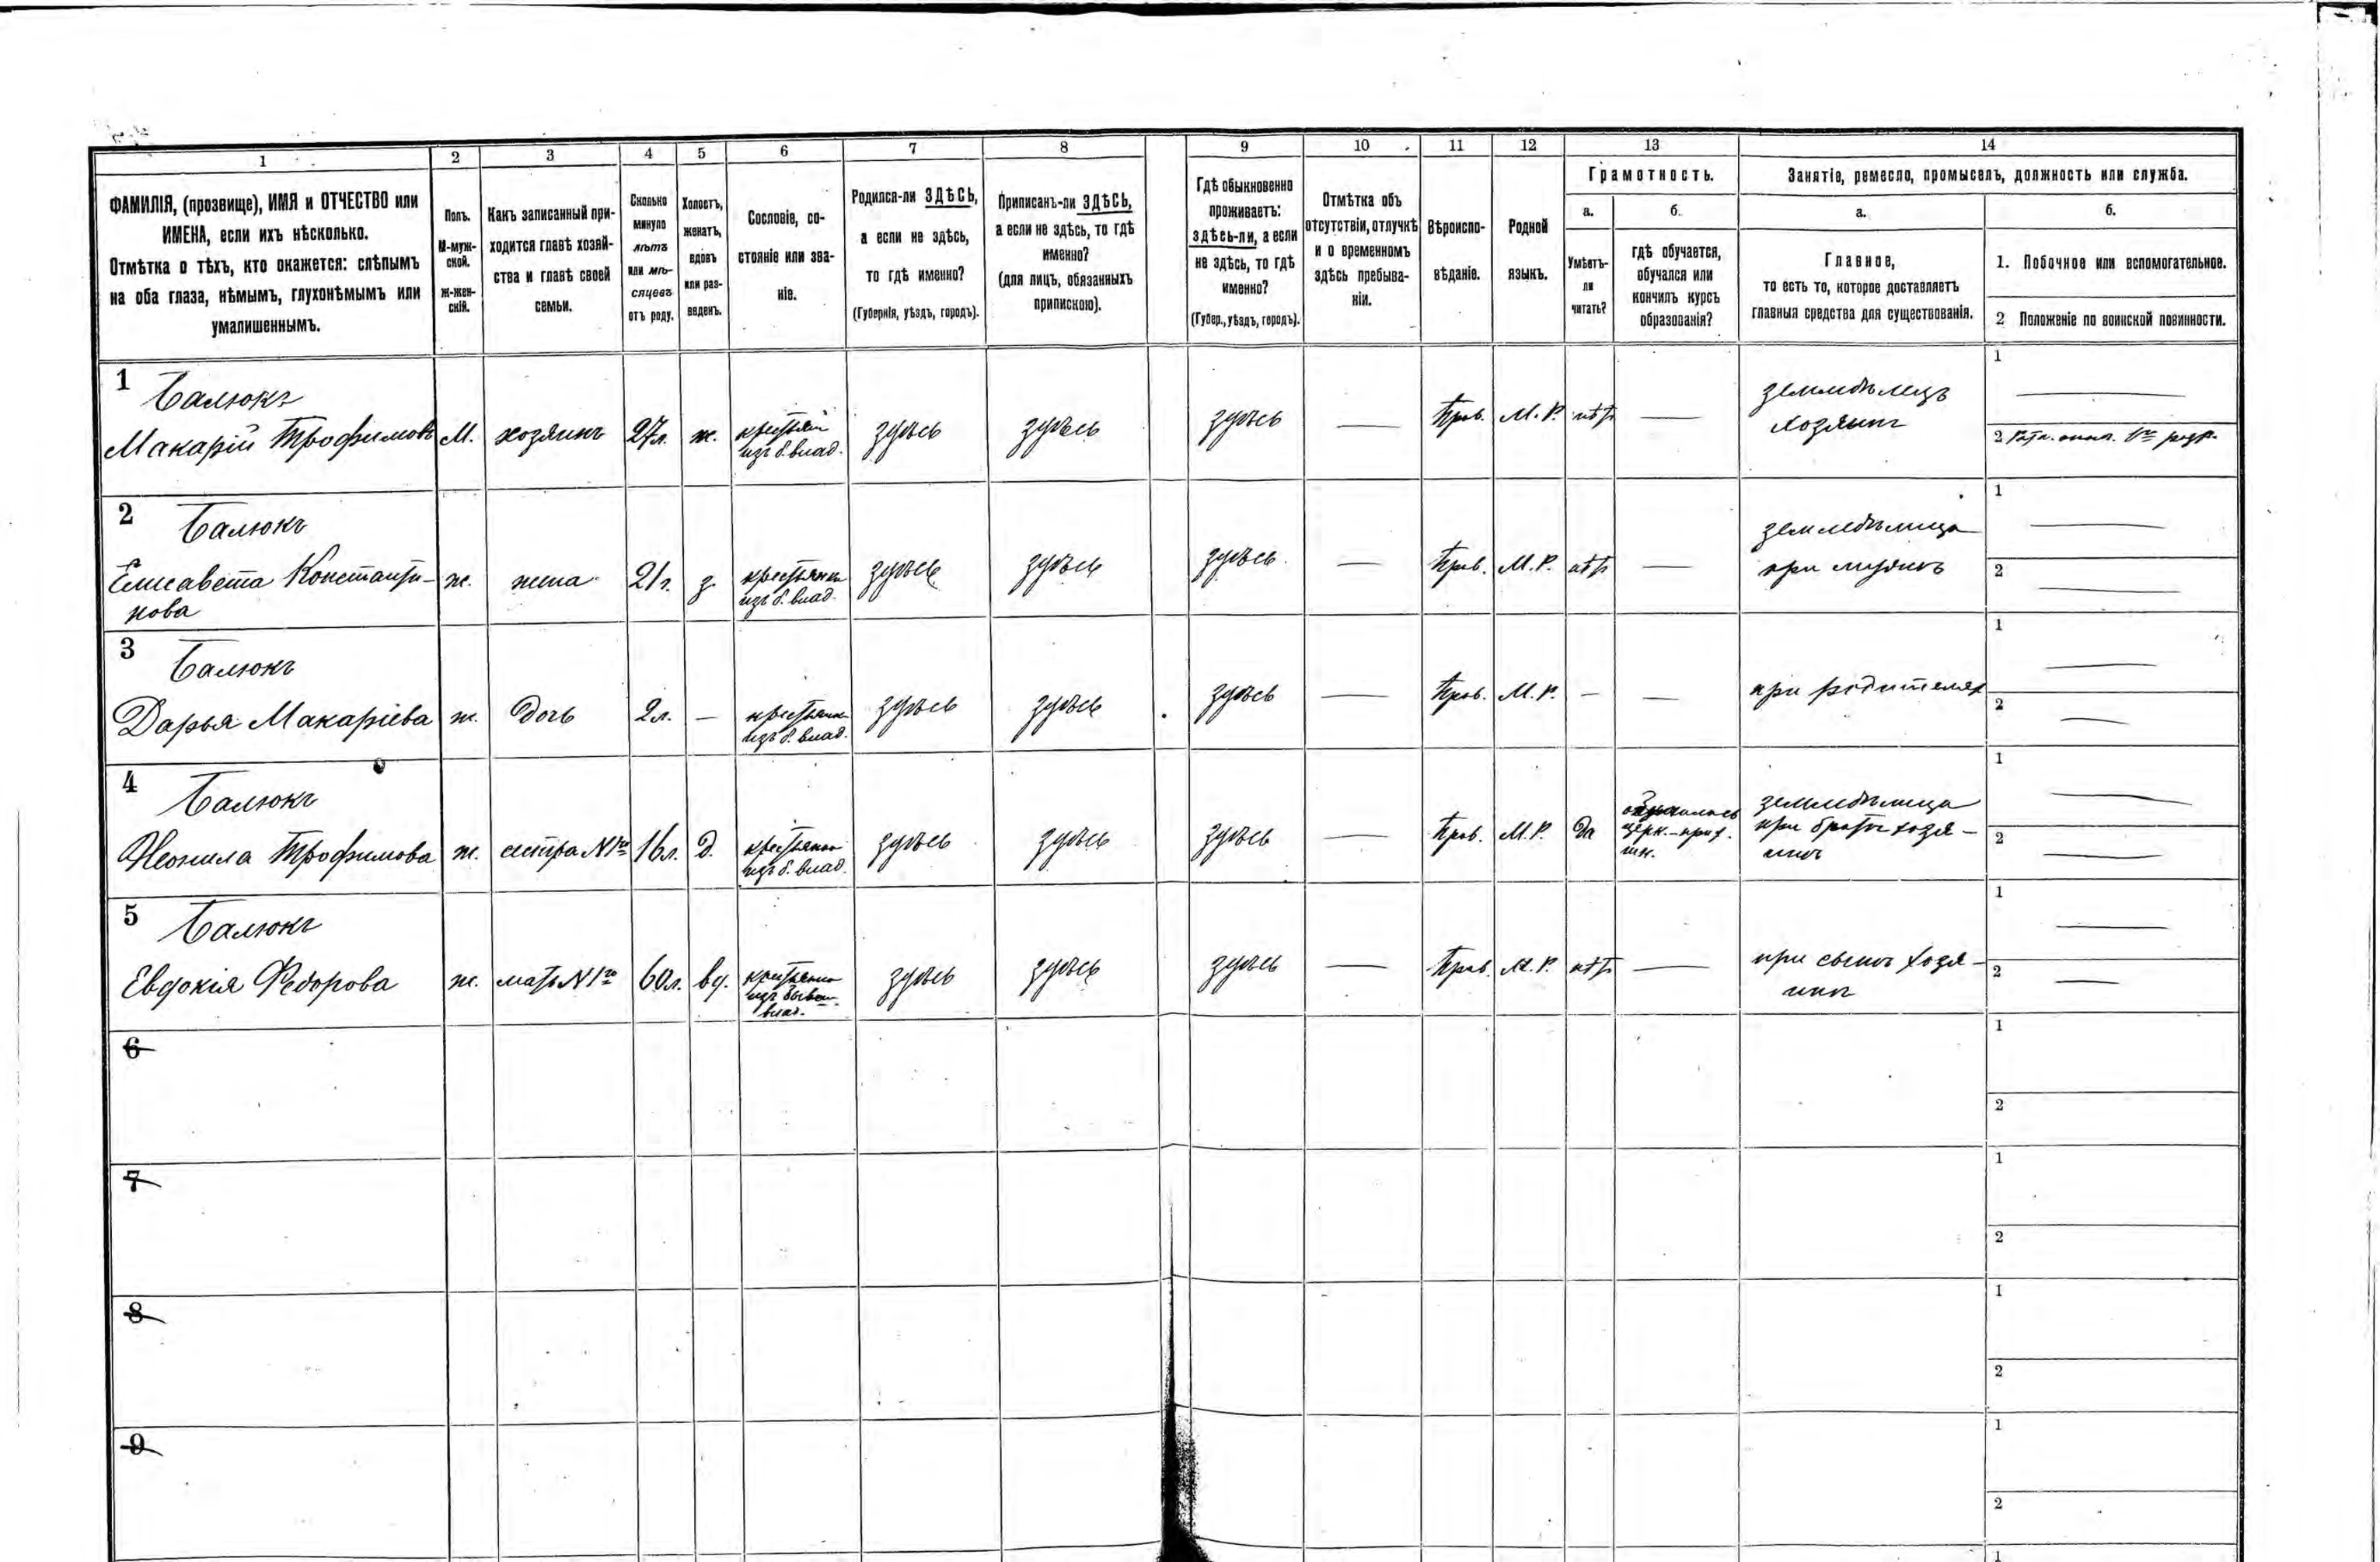 1 2 3 4 5 6 7 8 9 10 11 12 13 14
ФАМИЛІЯ, (прозвище), ИМЯ и ОТЧЕСТВО или
ИМЕНА, если ихъ нѣсколько.
Отмѣтка о тѣхъ, кто окажется: слѣпымъ
на оба глаза, нѣмымъ, глухонѣмымъ или
умалишеннымъ.
Полъ.
М-муж-
ской.
Ж-жен-
скій.
Какъ записанный при-
ходится главѣ хозяй-
ства и главѣ своей
семьи.
Сколько
минуло
лѣтъ
или мѣ-
сяцевъ
отъ роду.
Холостъ,
женатъ,
вдовъ
или раз-
веденъ.
Сословіе, со-
стояніе или зва-
ніе.
Родился-ли ЗДѢСЬ,
а если не здѣсь,
то гдѣ именно?
(Губернія, уѣздъ, городъ).
Приписанъ-ли ЗДѢСЬ,
а если не здѣсь, то гдѣ
именно?
(для лицъ, обязанныхъ
припискою).
Гдѣ обыкновенно
проживаетъ:
здѣсь-ли, а если
не здѣсь, то гдѣ
именно?
(Губер., уѣздъ, городъ).
Отмѣтка объ
отсутствіи, отлучкѣ
и о временномъ
здѣсь пребыва-
ніи.
Вѣроиспо-
вѣданіе.
Родной
языкъ.
Грамотность.
а.
Умѣетъ-
ли
читать?
б.
гдѣ обучается,
обучался или
кончилъ курсъ
образованія?
Занятіе, ремесло, промыселъ, должность или служба.
а.
Главное,
то есть то, которое доставляетъ
главныя средства для существованія.
б.
1. Побочное или вспомогательное.
2 Положеніе по воинской повинности.
1 Балюкъ
Макарій Трофимовъ
М.
хозяинъ
27л.
ж.
крестьян
изъ б. влад.
здѣсь
здѣсь
здѣсь
—
Прав.
М.Р.
нѣтъ
—
земледѣлецъ
хозяинъ
1 —
2 Рат. опол. 1го разр.
2 Балюкъ
Елисавета Константи-
нова
ж.
жена
21г.
з.
крестьянка
изъ б. влад.
здѣсь
здѣсь
здѣсь
—
Прав.
М.Р.
нѣтъ
—
земледѣлица
при мужѣ
1 —
2 —
3 Балюкъ
Дарья Макаріева
ж.
дочь
2л.
—
крестьянка
изъ б. влад.
здѣсь
здѣсь
здѣсь
—
Прав.
М.Р.
—
—
при родителях
1 —
2 —
4 Балюкъ
Неонила Трофимова
ж.
сестра N1го
16л.
д.
крестьянка
изъ б. влад.
здѣсь
здѣсь
здѣсь
—
Прав.
М.Р.
да
церк.-прих.
шк.
земледѣлица
при братѣ хозя-
инѣ
1 —
2 —
5 Балюкъ
Евдокія Ѳедорова
ж.
мать N1го
60л.
вд.
крестьянка
изъ бывш.
влад.
здѣсь
здѣсь
здѣсь
—
Прав.
М.Р.
нѣтъ
—
при сынѣ хозя-
инѣ
1 —
2 —
6
1
2
7
1
2
8
1
2
9
1
2
1